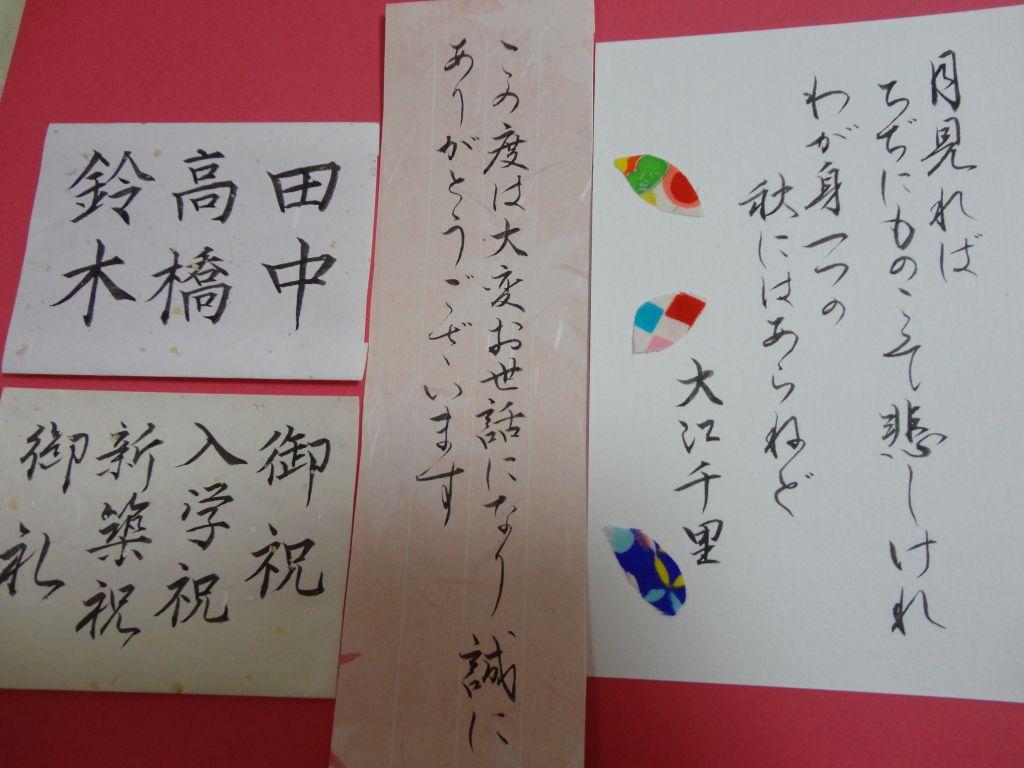 月見れば
ちぢにものこそ悲しけれ
わが身一つの
秋にはあらねど
大江千里
この度は大変お世話になり 誠に
ありがとうございます
田中
高橋
鈴木
御祝
入学祝
新築祝
御礼